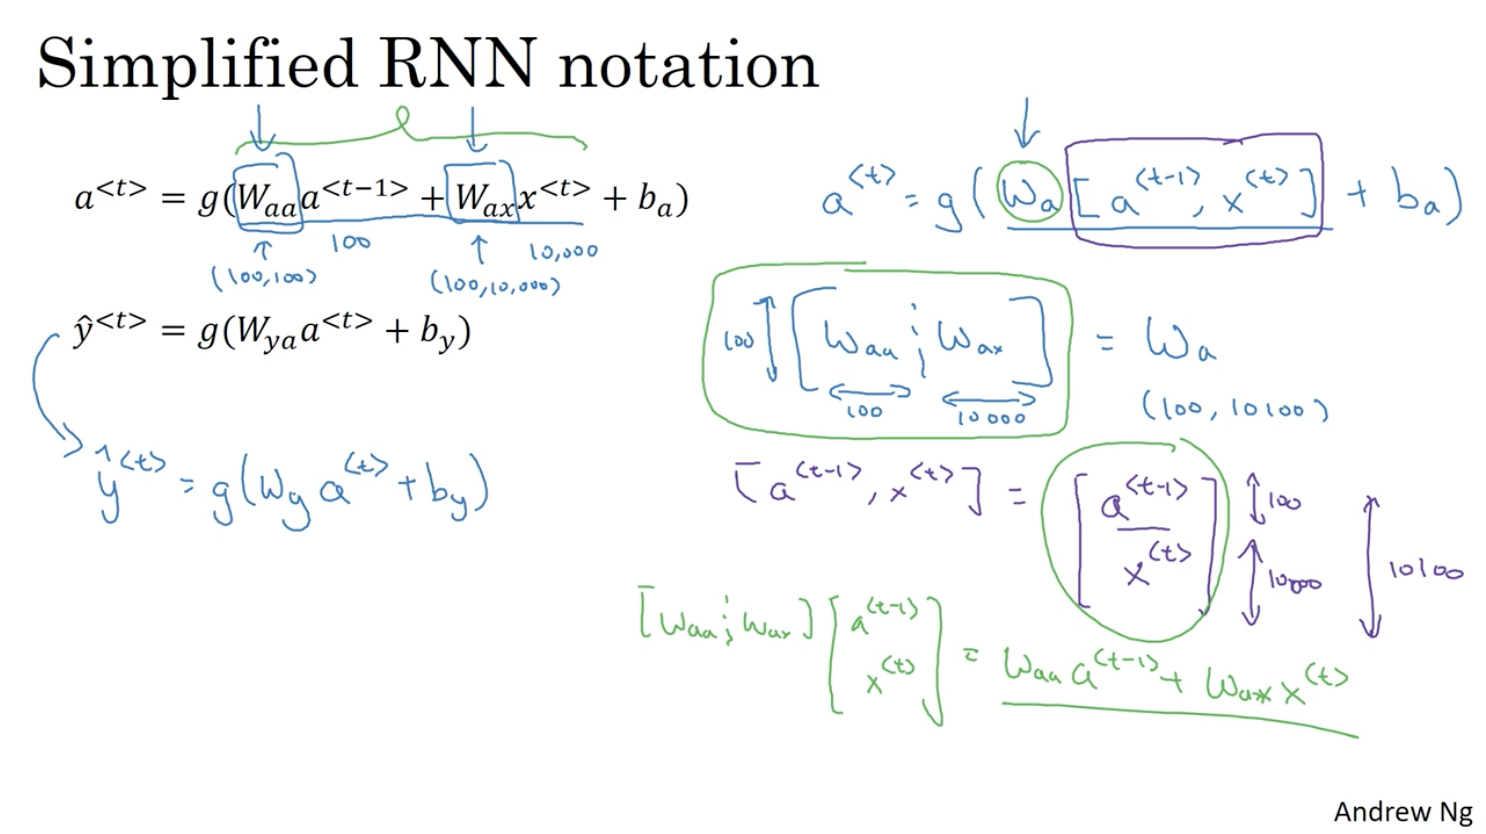 Simplified RNN notation
a<t> = g(Waaa<t−1> + Waxx<t> + ba)
100
10,000
(100,100)
(100,10,000)
ŷ<t> = g(Wyaa<t> + by)
ŷ<t> = g(Wy a<t> + by)
a<t> = g(Wa[a<t-1>, x<t>] + ba)
100 [Waa ¦ Wax] = Wa
100
10000
(100, 10100)
[a<t-1>, x<t>] = [a<t-1> x<t>]
100
10000
10100
[Waa ¦ Wax] [a<t-1> x<t>] = Waa a<t-1> + Wax x<t>
Andrew Ng